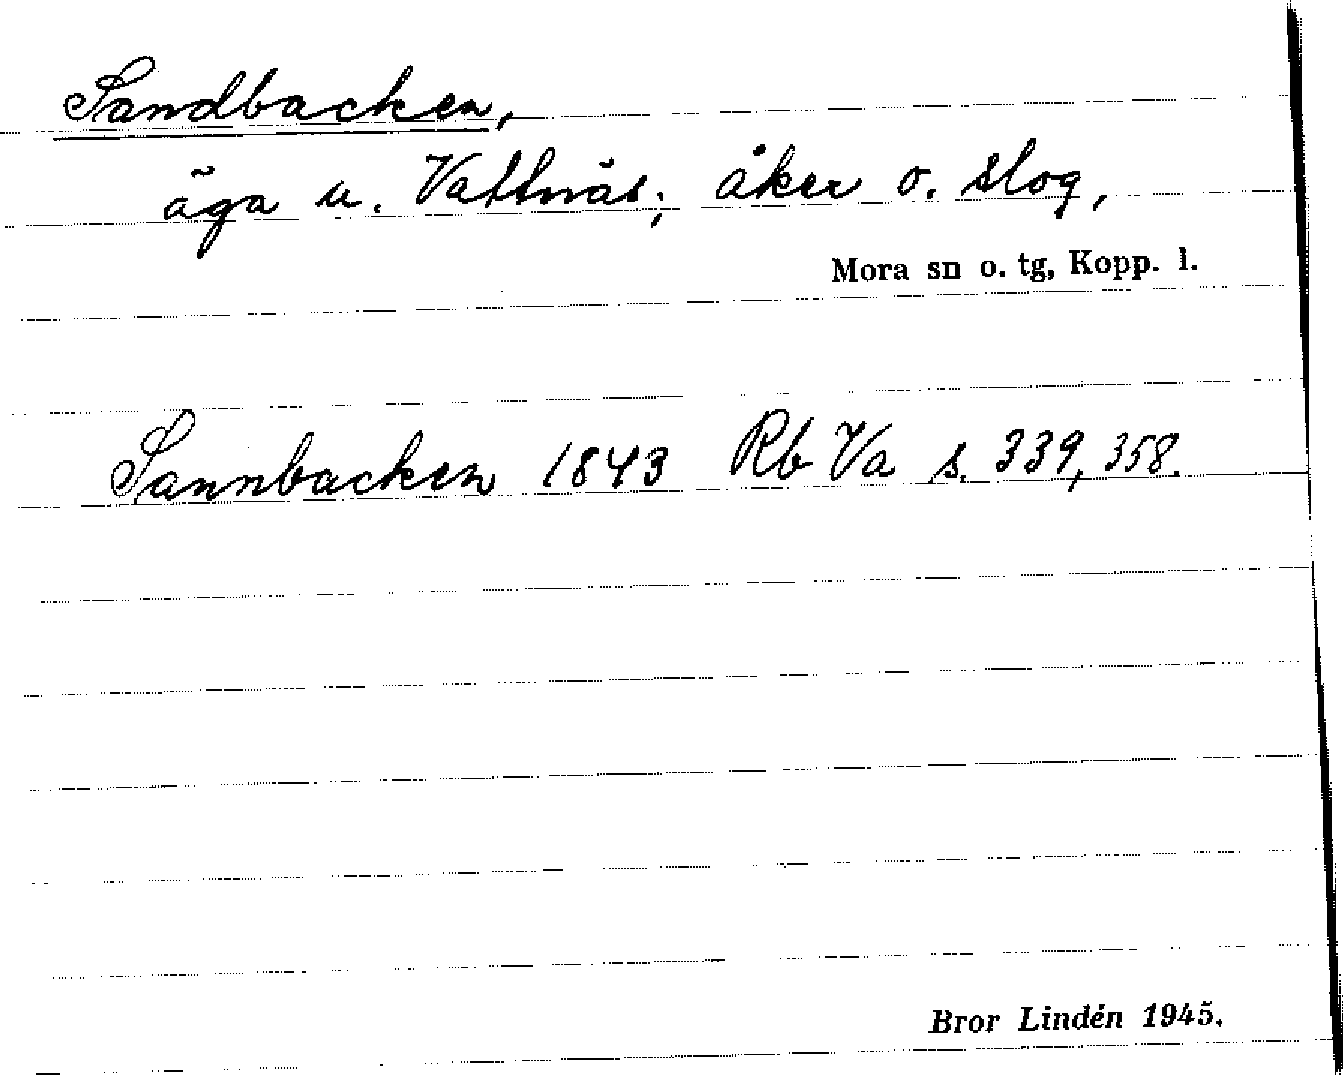 Sandbacken,
äga u. Vattnäs; åker o. slog,
Mora sn o. tg, Kopp. l.
Sannbacken 1843 Rb Va s. 339, 358.
Bror Lindén 1945.